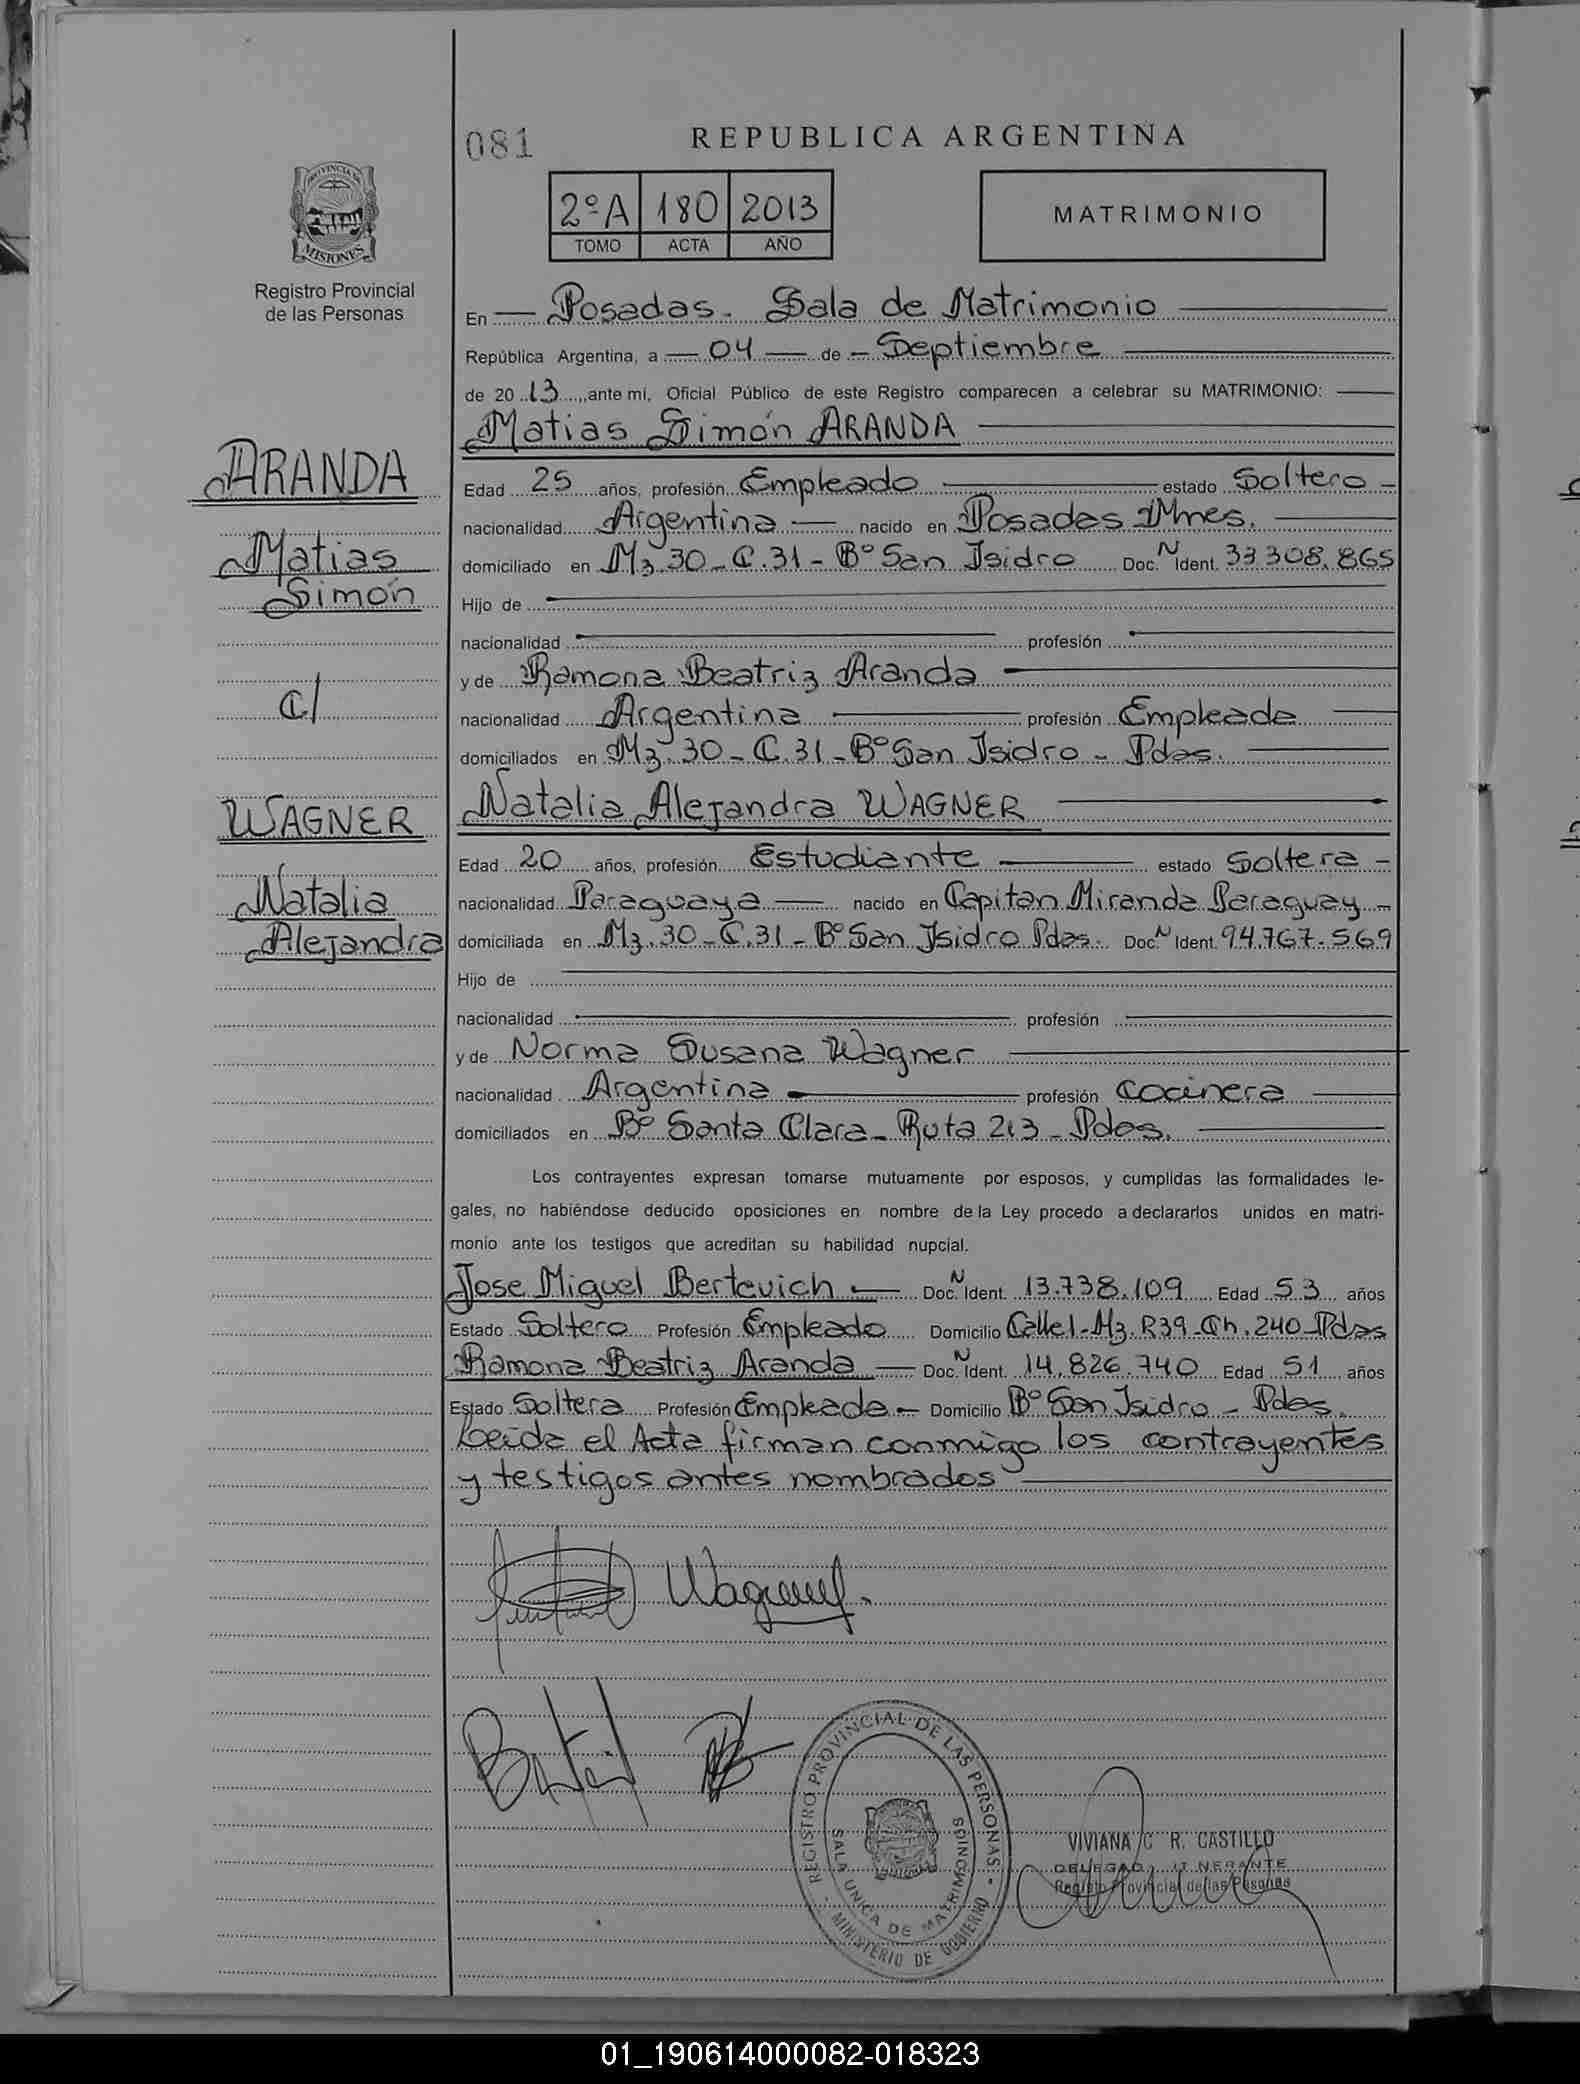 081
REPUBLICA ARGENTINA
PROVINCIA DE
MISIONES
Registro Provincial
de las Personas
2ºA 180 2013
TOMO ACTA AÑO
MATRIMONIO
En Posadas. Sala de Matrimonio
República Argentina, a 04 de Septiembre
de 2013, ante mi, Oficial Público de este Registro comparecen a celebrar su MATRIMONIO:
Matias Simón ARANDA
ARANDA
Matias
Simón
Edad 25 años, profesión Empleado estado Soltero
nacionalidad Argentina nacido en Posadas Mnes.
domiciliado en Mz.30-C.31-Bº San Isidro Doc. N Ident. 33.308.865
Hijo de
nacionalidad profesión
y de Ramona Beatriz Aranda
c/
nacionalidad Argentina profesión Empleada
domiciliados en Mz.30-C.31-Bº San Isidro - Pdas.
WAGNER
Natalia
Alejandra
Natalia Alejandra WAGNER
Edad 20 años, profesión Estudiante estado Soltera
nacionalidad Paraguaya nacido en Capitan Miranda Paraguay
domiciliada en Mz.30-C.31-Bº San Isidro Pdas. Doc. N Ident. 94.767.569
Hijo de
nacionalidad profesión
y de Norma Susana Wagner
nacionalidad Argentina profesión Cocinera
domiciliados en Bº Santa Clara - Ruta 213 - Pdas.
Los contrayentes expresan tomarse mutuamente por esposos, y cumplidas las formalidades le-
gales, no habiéndose deducido oposiciones en nombre de la Ley procedo a declararlos unidos en matri-
monio ante los testigos que acreditan su habilidad nupcial.
Jose Miguel Bertevich Doc. N Ident. 13.738.109 Edad 53 años
Estado Soltero Profesión Empleado Domicilio Calle 1-Mz.R39-Ch.240-Pdas
Ramona Beatriz Aranda Doc. N Ident. 14.826.740 Edad 51 años
Estado Soltera Profesión Empleada Domicilio Bº San Isidro - Pdas.
Leida el Acta firman conmigo los contrayentes
y testigos antes nombrados
REGISTRO PROVINCIAL DE LAS PERSONAS
SALA UNICA DE MATRIMONIOS
MINISTERIO DE GOBIERNO
VIVIANA C R. CASTILLO
Registro Provincial de las Personas
01_190614000082-018323